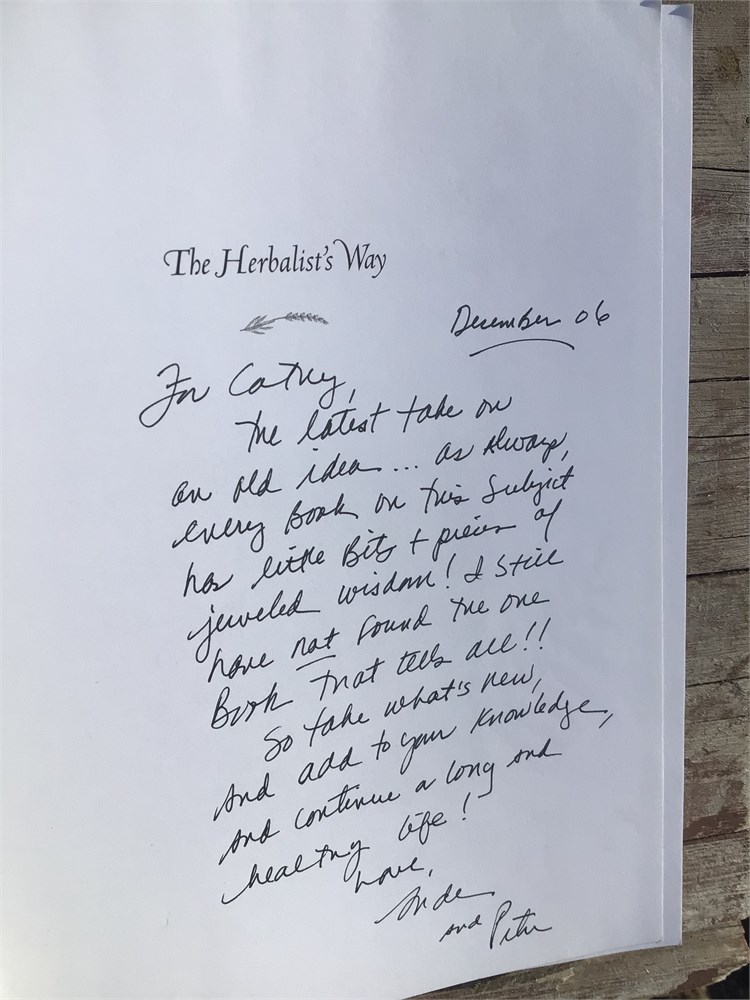 The Herbalist's Way
December 06
For Cathy,
The latest take on
an old idea... as always,
every Book on this subject
has little Bits + pieces of
jeweled wisdom! I still
have not found the one
Book that tells all!!
So take what's new,
and add to your knowledge,
and continue a long and
healthy life!
Love,
and Peter